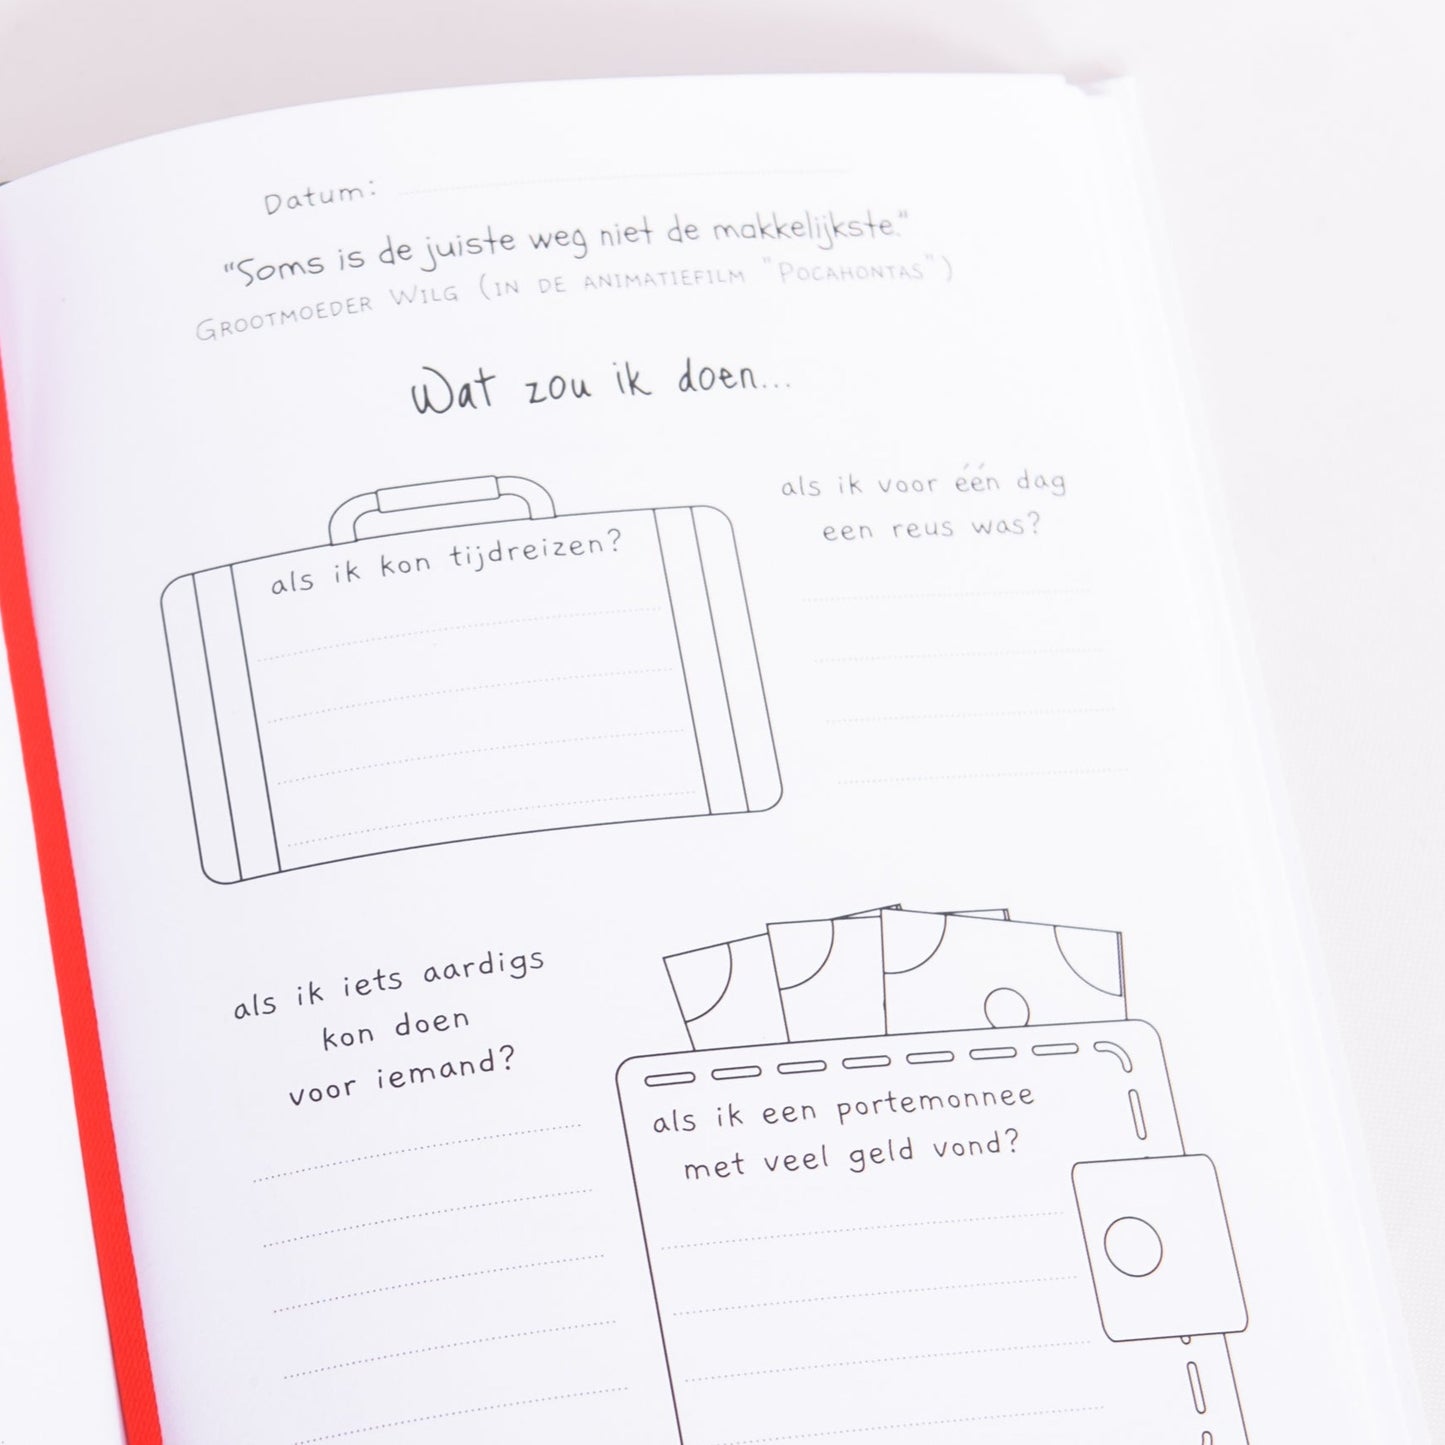 Datum:
"Soms is de juiste weg niet de makkelijkste."
Grootmoeder Wilg (in de animatiefilm "Pocahontas")
Wat zou ik doen...
als ik kon tijdreizen?
als ik voor één dag
een reus was?
als ik iets aardigs
kon doen
voor iemand?
als ik een portemonnee
met veel geld vond?